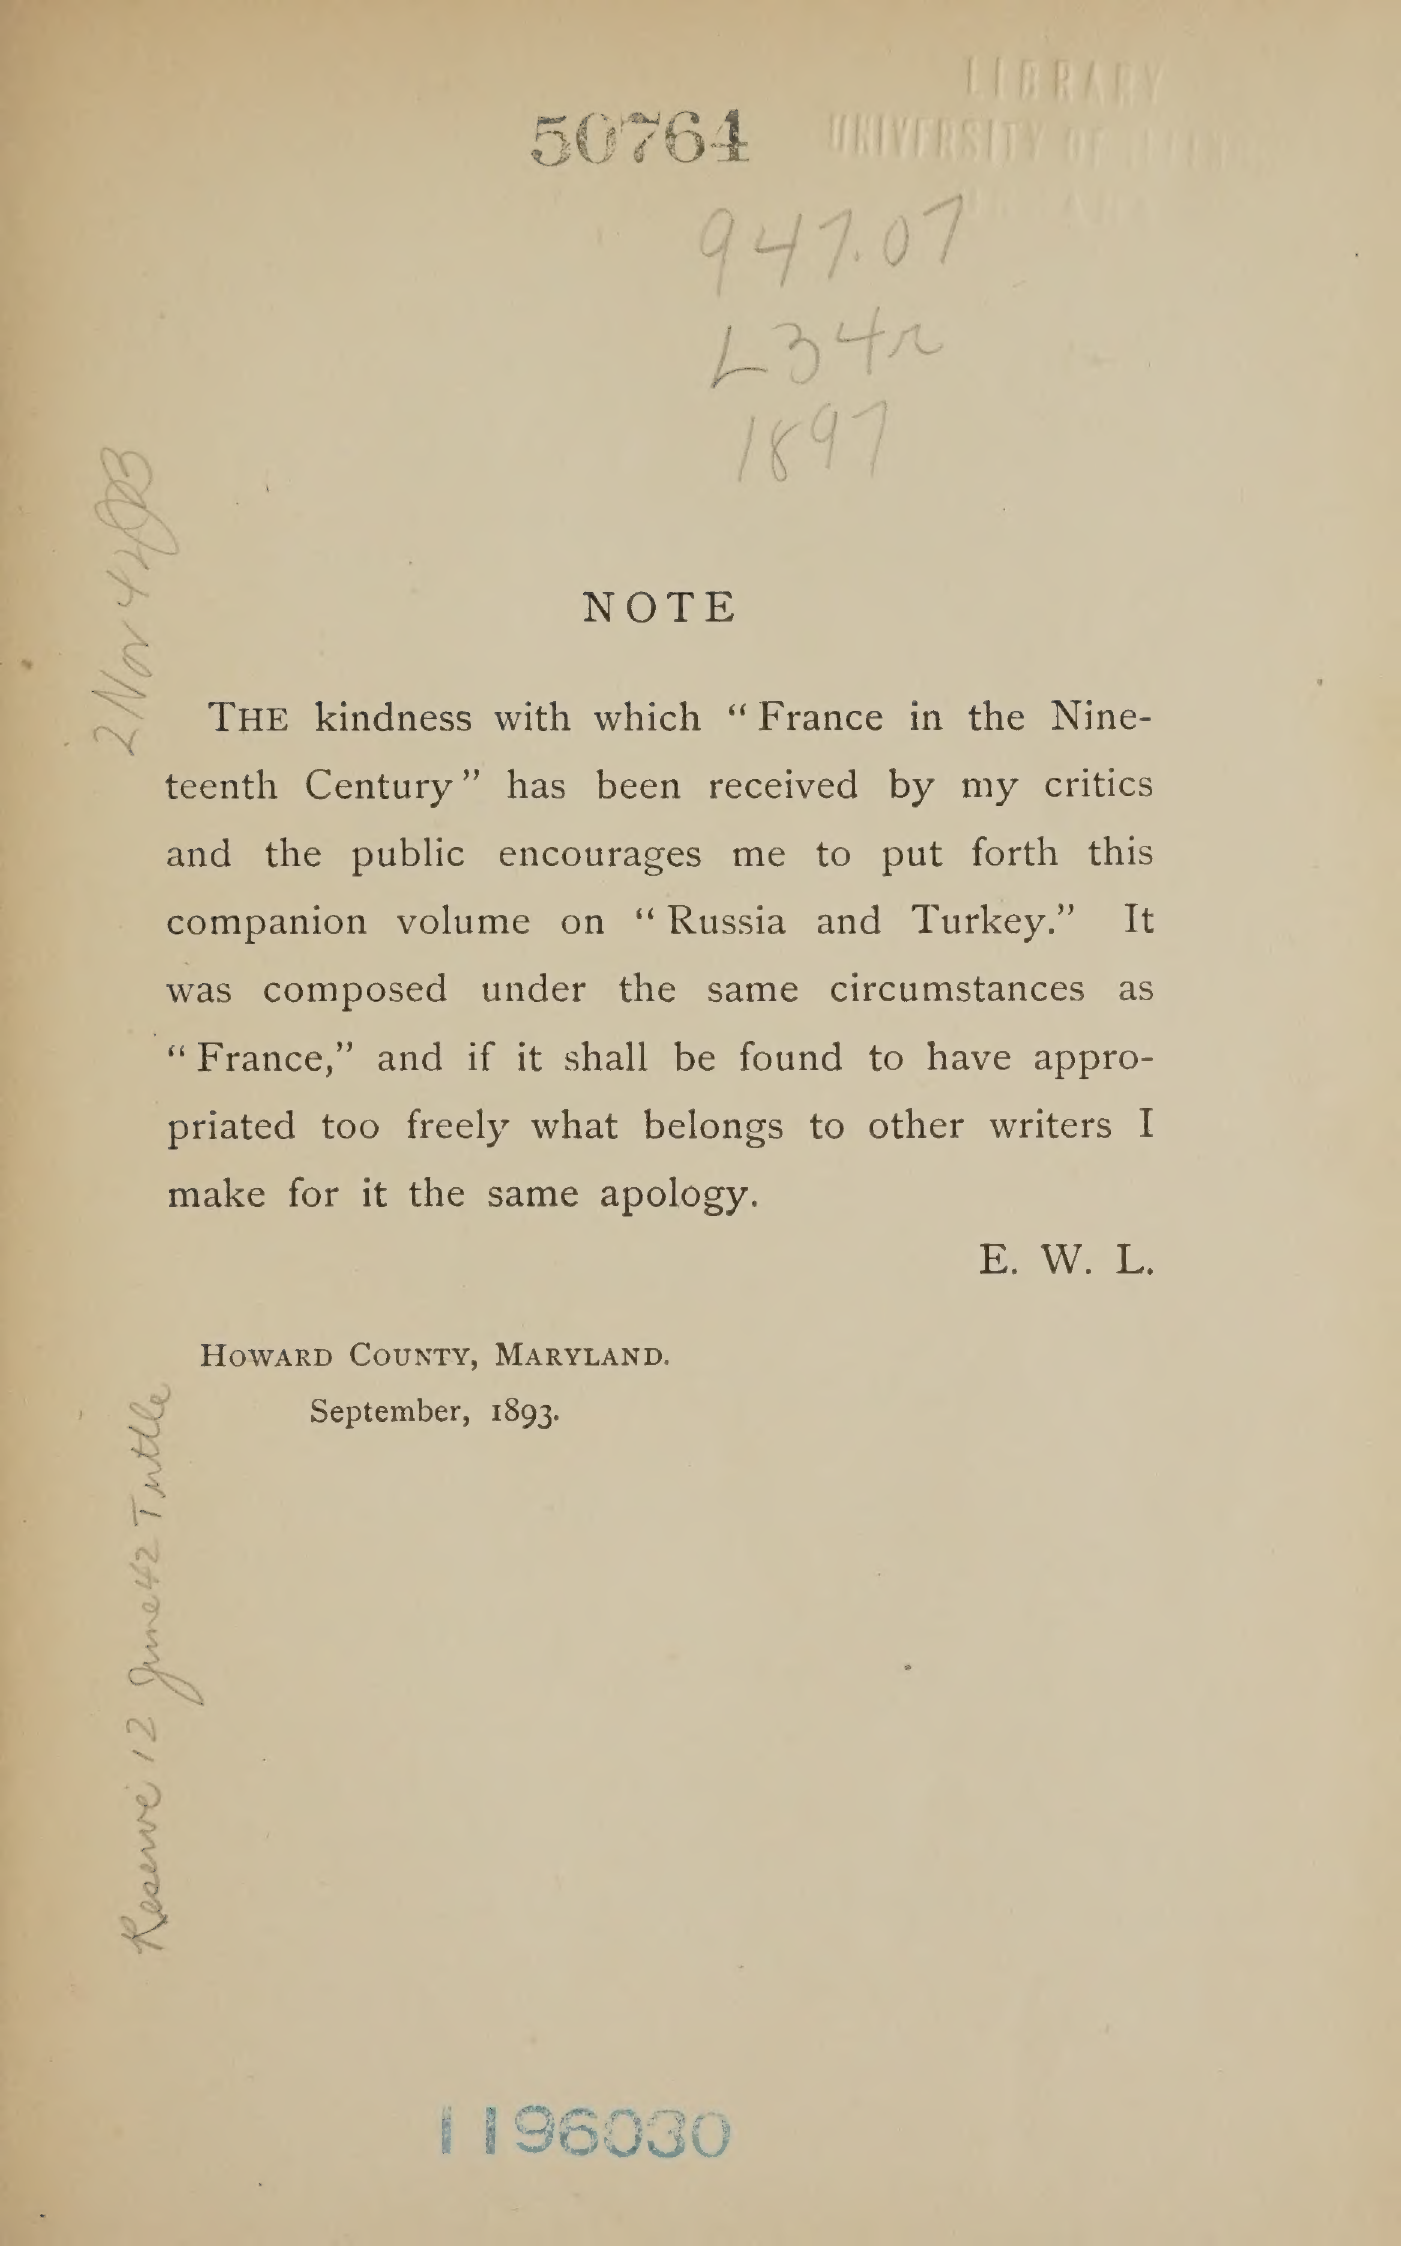 LIBRARY
50764
UNIVERSITY OF
947.07
L34r
1897
2 Nov 42
NOTE
THE kindness with which “France in the Nine-
teenth Century” has been received by my critics
and the public encourages me to put forth this
companion volume on “Russia and Turkey.” It
was composed under the same circumstances as
“France,” and if it shall be found to have appro-
priated too freely what belongs to other writers I
make for it the same apology.
E. W. L.
HOWARD COUNTY, MARYLAND.
September, 1893.
Reserve 12 June 42 Tuttle
1196030